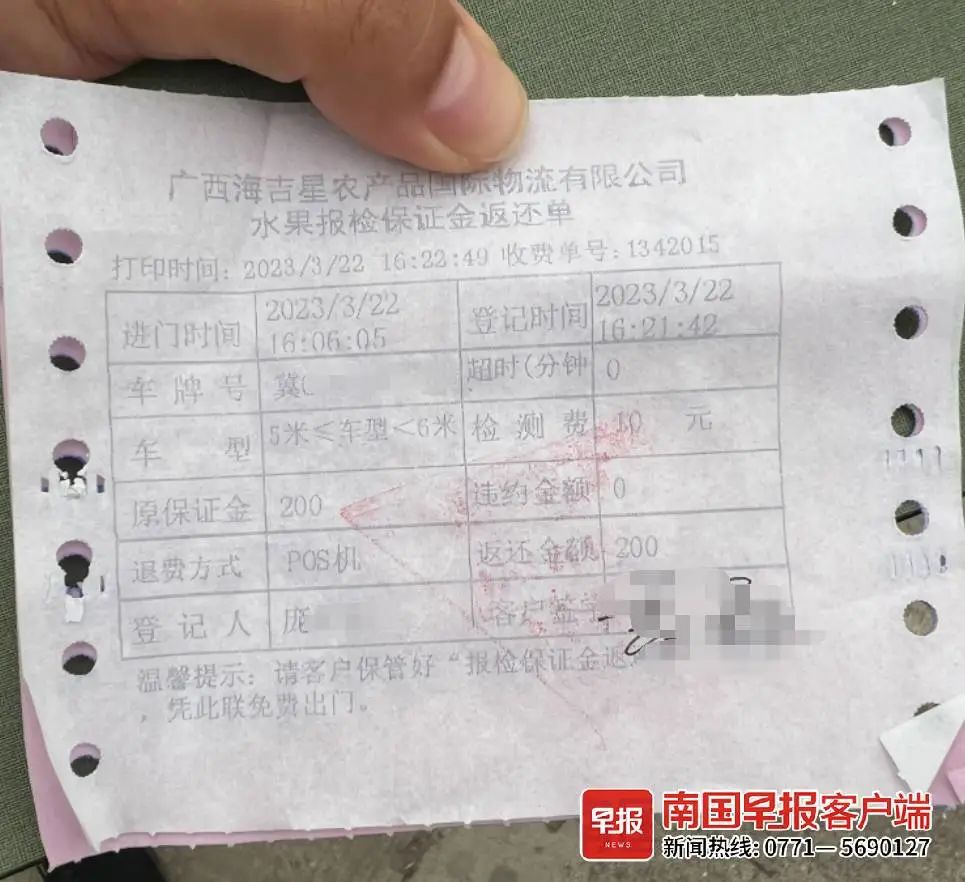 广西海吉星农产品国际物流有限公司
水果报检保证金返还单
打印时间: 2023/3/22 16:22:49 收费单号:1342015
进门时间 2023/3/22 16:06:05 登记时间 2023/3/22 16:21:42
车牌号 冀 超时(分钟 0
车型 5米≤车型<6米 检测费 10 元
原保证金 200 违约金额 0
退费方式 POS机 返还金额 200
登记人 庞 客户签
温馨提示: 请客户保管好“报检保证金返
，凭此联免费出门。
早报
NEWS
南国早报客户端
新闻热线: 0771—5690127